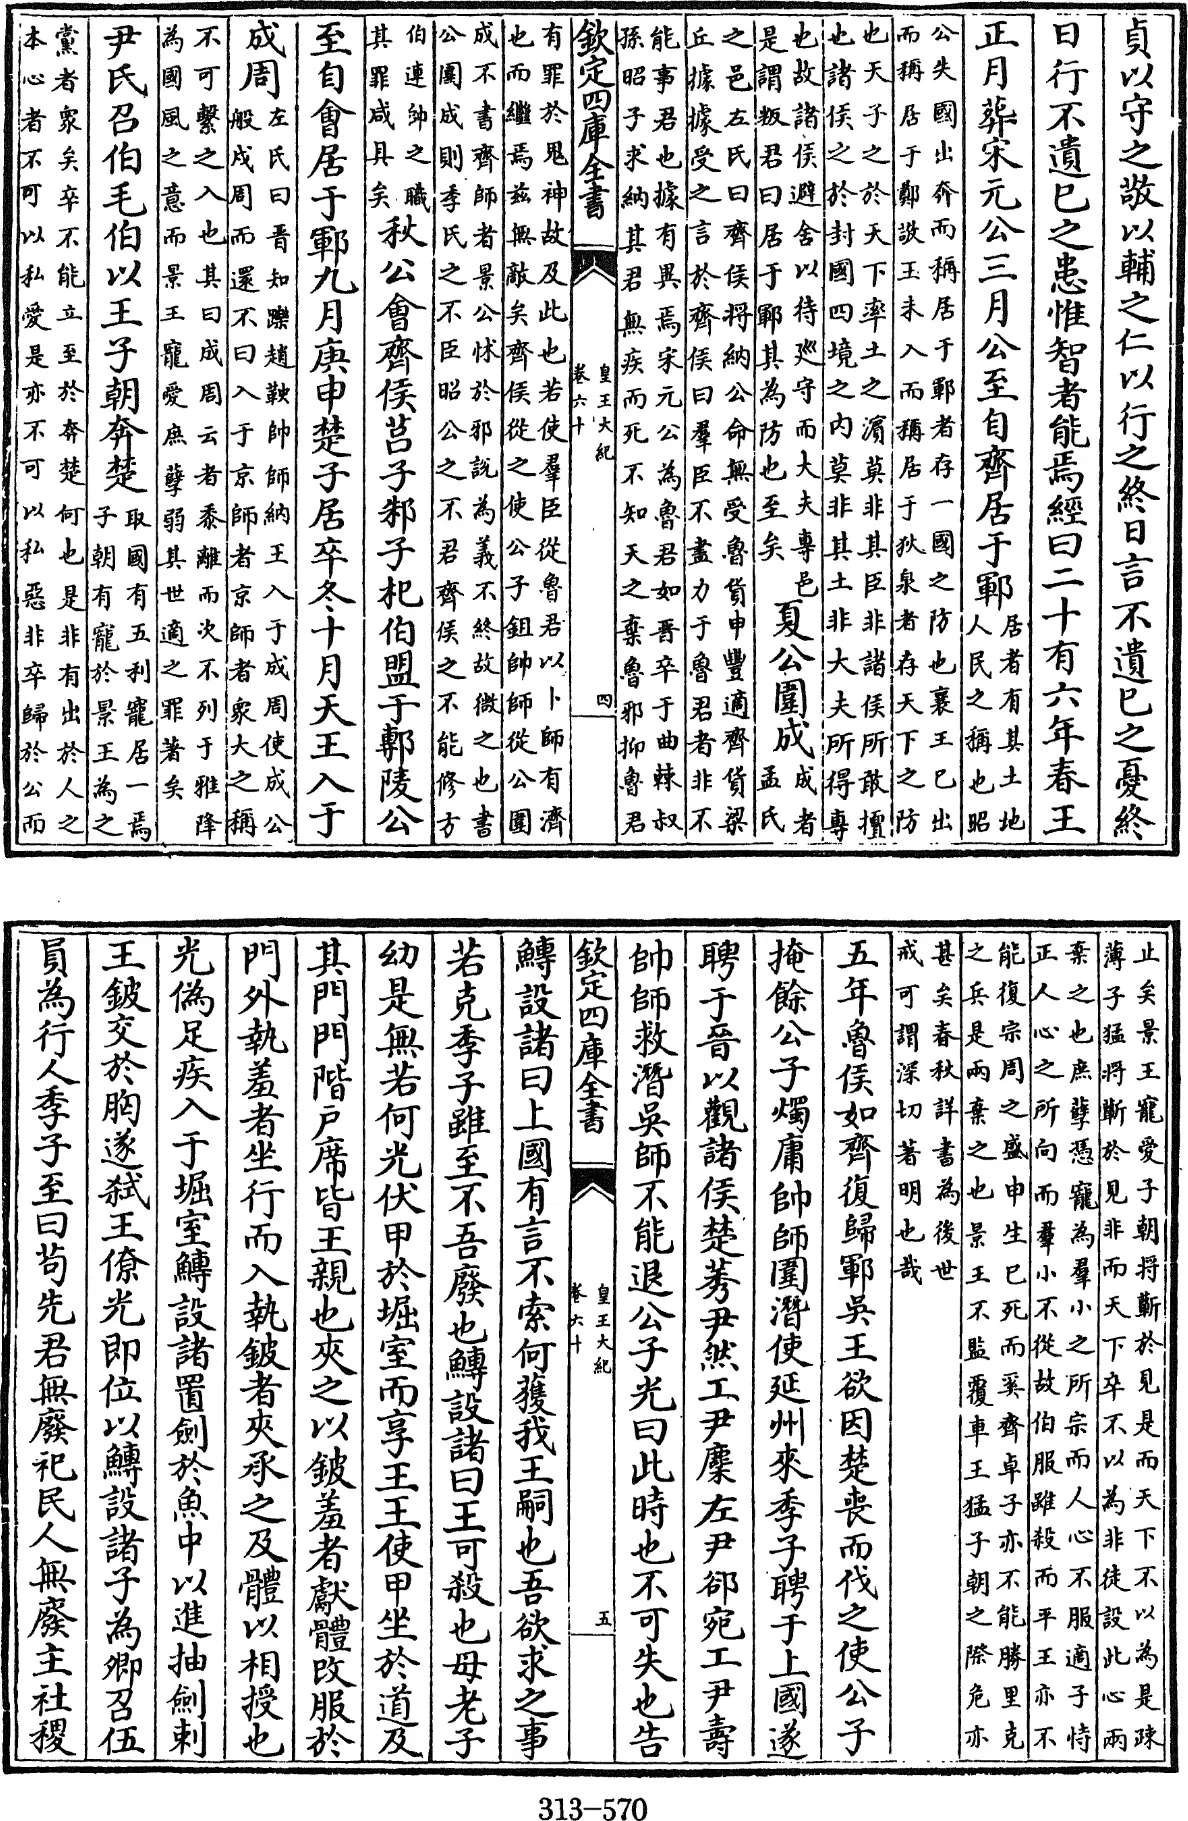 貞以守之敬以輔之仁以行之終日言不遺已之憂終
日行不遺已之患惟智者能焉經曰二十有六年春王
正月葬宋元公三月公至自齊居于鄆居者有其土地
人民之稱也昭
公失國出奔而稱居于鄆者存一國之防也襄王已出
而稱居于鄭敬王未入而稱居于狄泉者存天下之防
也天子之於天下率土之濱莫非其臣非諸侯所敢擅
也諸侯之於封國四境之内莫非其土非大夫所得專
也故諸侯避舍以待廵守而大夫專邑
是謂叛君曰居于鄆其為防也至矣夏公圍成成者
孟氏
之邑左氏曰齊侯將納公命無受魯貨申豐適齊貨梁
丘據據受之言於齊侯曰羣臣不盡力于魯君者非不
能事君也據有異焉宋元公為魯君如晋卒于曲棘叔
孫昭子求納其君無疾而死不知天之棄魯邪抑魯君
欽定四庫全書
皇王大紀
卷六十
四
有罪於鬼神故及此也若使羣臣從魯君以卜師有濟
也而繼焉兹無敵矣齊侯從之使公子鉏帥師從公圍
成不書齊師者景公怵於邪説為義不終故微之也書
公圍成則季氏之不臣昭公之不君齊侯之不能修方
伯連帥之職
其罪咸具矣秋公會齊侯莒子邾子杞伯盟于鄟陵公
至自會居于鄆九月庚申楚子居卒冬十月天王入于
成周左氏曰晋知躒趙鞅帥師納王入于成周使成公
般戍周而還不曰入于京師者京師者衆大之稱
不可繫之入也其曰成周云者黍離而次不列于雅降
為國風之意而景王寵愛庶孽弱其世適之罪著矣
尹氏召伯毛伯以王子朝奔楚取國有五利寵居一焉
子朝有寵於景王為之
黨者衆矣卒不能立至於奔楚何也是非有出於人之
本心者不可以私愛是亦不可以私惡非卒歸於公而
止矣景王寵愛子朝將斬於見是而天下不以為是疎
薄子猛將斬於見非而天下卒不以為非徒設此心兩
棄之也庶孽憑寵為羣小之所宗而人心不服適子恃
正人心之所向而羣小不從故伯服雖殺而平王亦不
能復宗周之盛申生已死而奚齊卓子亦不能勝里克
之兵是兩棄之也景王不監覆車王猛子朝之際危亦
甚矣春秋詳書為後世
戒可謂深切著明也哉
五年魯侯如齊復歸鄆吳王欲因楚喪而伐之使公子
掩餘公子燭庸帥師圍潛使延州來季子聘于上國遂
聘于晉以觀諸侯楚莠尹然工尹麇左尹郤宛工尹壽
帥師救潛吳師不能退公子光曰此時也不可失也告
欽定四庫全書
皇王大紀
卷六十
五
鱄設諸曰上國有言不索何獲我王嗣也吾欲求之事
若克季子雖至不吾廢也鱄設諸曰王可殺也母老子
幼是無若何光伏甲於堀室而享王王使甲坐於道及
其門門階戸席皆王親也夾之以鈹羞者獻體改服於
門外執羞者坐行而入執鈹者夾承之及體以相授也
光偽足疾入于堀室鱄設諸置劍於魚中以進抽劍刺
王鈹交於胸遂弑王僚光即位以鱄設諸子為卿召伍
員為行人季子至曰苟先君無廢祀民人無廢主社稷
313-570